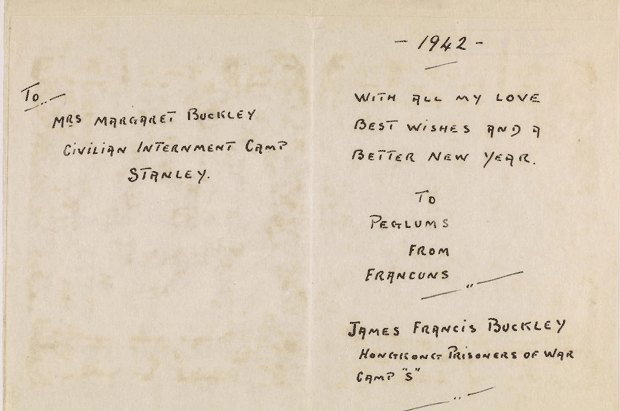 To
Mrs Margaret Buckley
Civilian Internment Camp
Stanley.
- 1942 -
With all my love
Best wishes and a
Better New Year.
To
Peglums
From
Francuns
James Francis Buckley
Hongkong Prisoners of War
Camp "S"